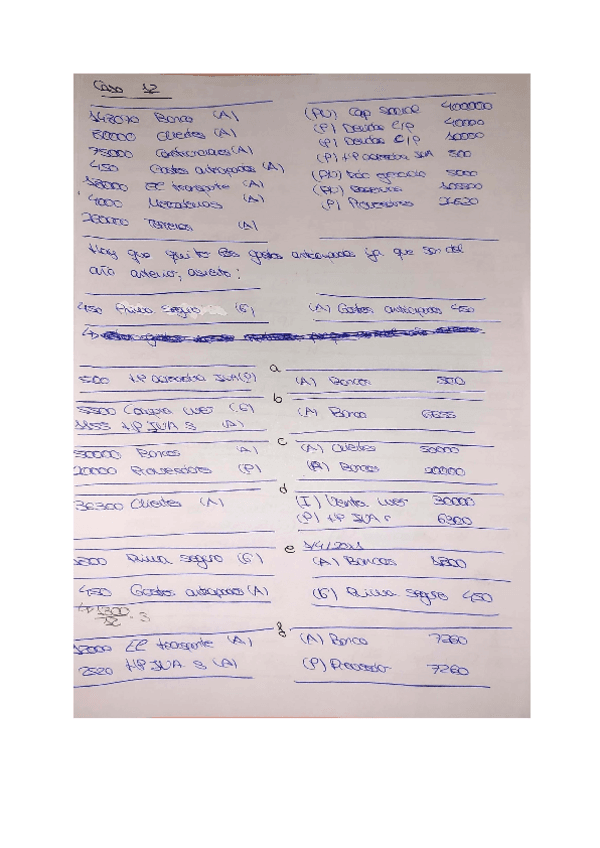 Caso 12
148070 Banco (A) (PN) Cap Social 400000
60000 Clientes (A) (P) Deudas l/p 40000
75000 Construcciones (A) (P) Deudas c/p 10000
450 Gastos anticipados (A) (P) HP acreedora IVA 500
18000 EE transporte (A) (PN) Rdo ejercicio 5000
4000 Mercaderías (A) (PN) Reservas
260000 Terrenos (A) (P) Proveedores
Hay que quitar los gastos anticipados ya que son del
año anterior; asiento:
450 Prima Seguro (G) (A) Gastos anticipados 450
a
500 HP acreedora IVA (P) (A) Bancos 500
b
5500 Compra mer (G) (A) Banco 6655
1155 HP IVA S (A)
c
50000 Bancos (A) (A) Clientes 50000
20000 Proveedores (P) (A) Bancos 20000
d
36300 Clientes (A) (I) Venta mer 30000
(P) HP IVA r 6300
e 1/4/2021
1800 Prima seguro (G) (A) Bancos 1800
450 Gastos anticipados (A) (G) Prima seguro 450
↳ 1800/12 · 3
f
12000 EE transporte (A) (A) Banco 7260
2520 HP IVA S (A) (P) Proveedor 7260